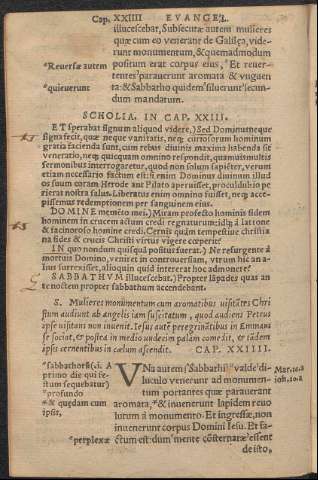 Cap. XXIIII EVANGEL.
illucescebat, Subsecutæ autem mulieres
quæ cum eo venerant de Galilea, vide-
runt monumentum, & quemadmodum
*Reuersæ autem positum erat corpus eius, *Et reuer-
tentes? parauerunt aromata & vnguen
*quieuerunt ta: & Sabbatho quidem* siluerunt? secun-
dum mandatum.
SCHOLIA. IN CAP. XXIII.
ET sperabat signum aliquod videre,) Sed Dominus neque
signa fecit, quæ neque vanitatis, neq; curiosorum hominum
gratia facienda sunt, cum rebus diuinis maxima habenda sit
veneratio, neq; quicquam omnino respondit, quamuis multis
sermonibus interrogaretur, quod non solum sapiẽter, verum
etiam necessario factum est: si enim Dominus diuinum illud
os suum coram Herode aut Pilato aperuisset, procul dubio pe
rierat nostra salus. Liberatus enim omnino fuisset, neq; acce-
pissemus redemptionem per sanguinem eius.
DOMINE memẽto mei,) Miram profecto hominis fidem
hominem in crucem actum credi regnaturum: idq; à latrone
& facinoroso homine credi. Cernis quàm tempestiue christia
na fides & crucis Christi virtus vigere cœperit?
IN quo nondum quisquã positus fuerat.) Ne resurgente à
mortuis Domino, veniret in controuersiam, vtrum hic an a-
lius surrexisset, alioquin quid intererat hoc admonere?
SABBATHVM illucescebat,) Propter lãpades quas an
te noctem propter sabbathum accendebant.
S. Mulieres monumentum cum aromatibus visitãtes Chri
stum audiunt ab angelis iam suscitatum, quod audiens Petrus
ipse visitans non inuenit. Iesus autẽ peregrinãtibus in Emmaus
se sociat, & postea in medio vndecim palam comedit, & tãdem
ipsis cernentibus in cælum ascendit. CAP. XXIIII.
*sabbathorũ (.i. A VNa autem *Sabbathi? *valde di-
primo die qui fe- luculo venerunt ad monumen- Mar. 16.a
stum sequebatur) tum portantes quæ parauerant ioh. 20.a
*profundo aromata, *& inuenerunt lapidem reuo
*& quædam cum lutum à monumento. Et ingressæ, non
ipsis, inuenerunt corpus Domini Iesu. Et fa-
*perplexæ ctum est: dum* mente cõsternatæ? essent
de isto,